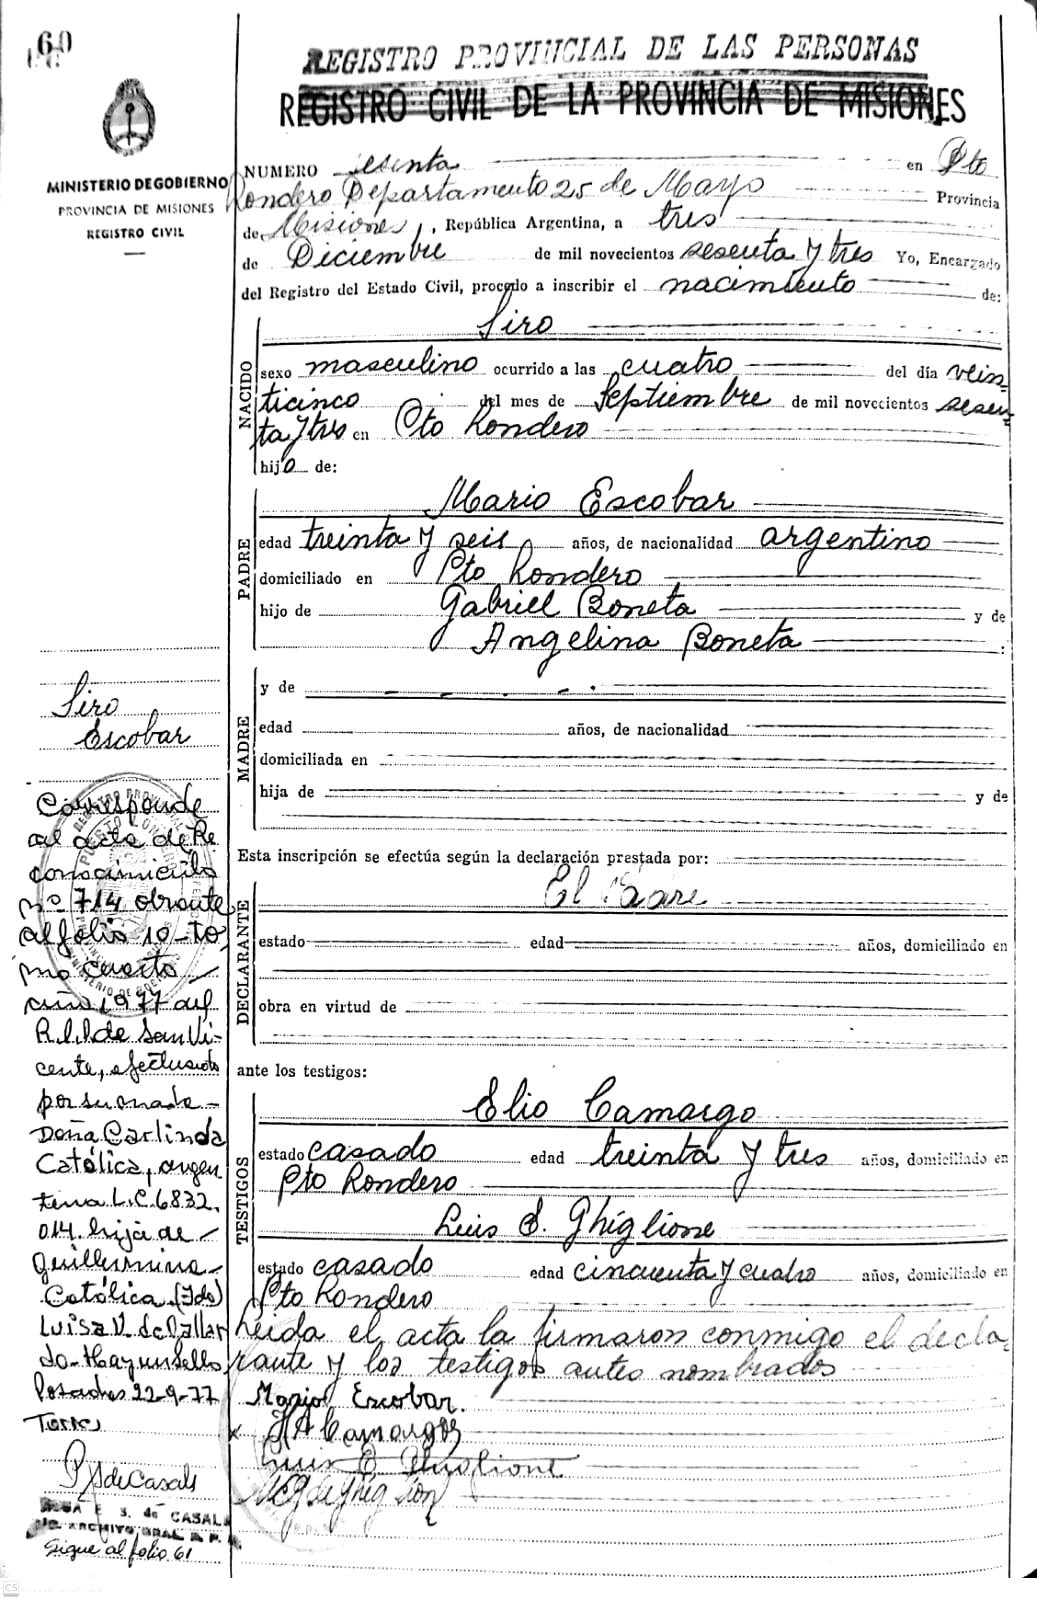 60
REGISTRO PROVINCIAL DE LAS PERSONAS
REGISTRO CIVIL DE LA PROVINCIA DE MISIONES
MINISTERIO DE GOBIERNO
PROVINCIA DE MISIONES
REGISTRO CIVIL
NUMERO sesenta en Pto
Londero Departamento 25 de Mayo Provincia
de Misiones, República Argentina, a tres
de Diciembre de mil novecientos sesenta y tres Yo, Encargado
del Registro del Estado Civil, procedo a inscribir el nacimiento de:
NACIDO
Siro
sexo masculino ocurrido a las cuatro del día vein
ticinco del mes de Septiembre de mil novecientos sesen
ta y tres en Pto Londero
hijo de:
PADRE
Mario Escobar
edad treinta y seis años, de nacionalidad argentino
domiciliado en Pto Londero
hijo de Gabriel Boneta y de
Angelina Boneta :
MADRE
y de
edad años, de nacionalidad
domiciliada en
hija de y de
Esta inscripción se efectúa según la declaración prestada por:
DECLARANTE
El Padre
estado edad años, domiciliado en
obra en virtud de
ante los testigos:
TESTIGOS
Elio Camargo
estado casado edad treinta y tres años, domiciliado en
Pto Londero
Luis S. Ghiglione
estado casado edad cincuenta y cuatro años, domiciliado en
Pto Londero
Leida el acta la firmaron conmigo el decla
rante y los testigos antes nombrados
Mario Escobar.
Camargo
Siro
Escobar
Corresponde
al acta de Re
conocimiento
nº 714 obrante
al folio 10-to
mo cuarto
año 1977 del
R.P.P. de San Vi-
cente, efectuado
por su madre -
Doña Carlinda
Católica, argen
tina L.C. 6832.
014. hija de
Guillermina
Católica. (Fdo)
Luisa V. de Gallar
do - Hay un sello
Posadas 22-9-77
de Casals
S. de CASALS
ARCHIVO GRAL. R. P.
Sigue al folio 61
CS